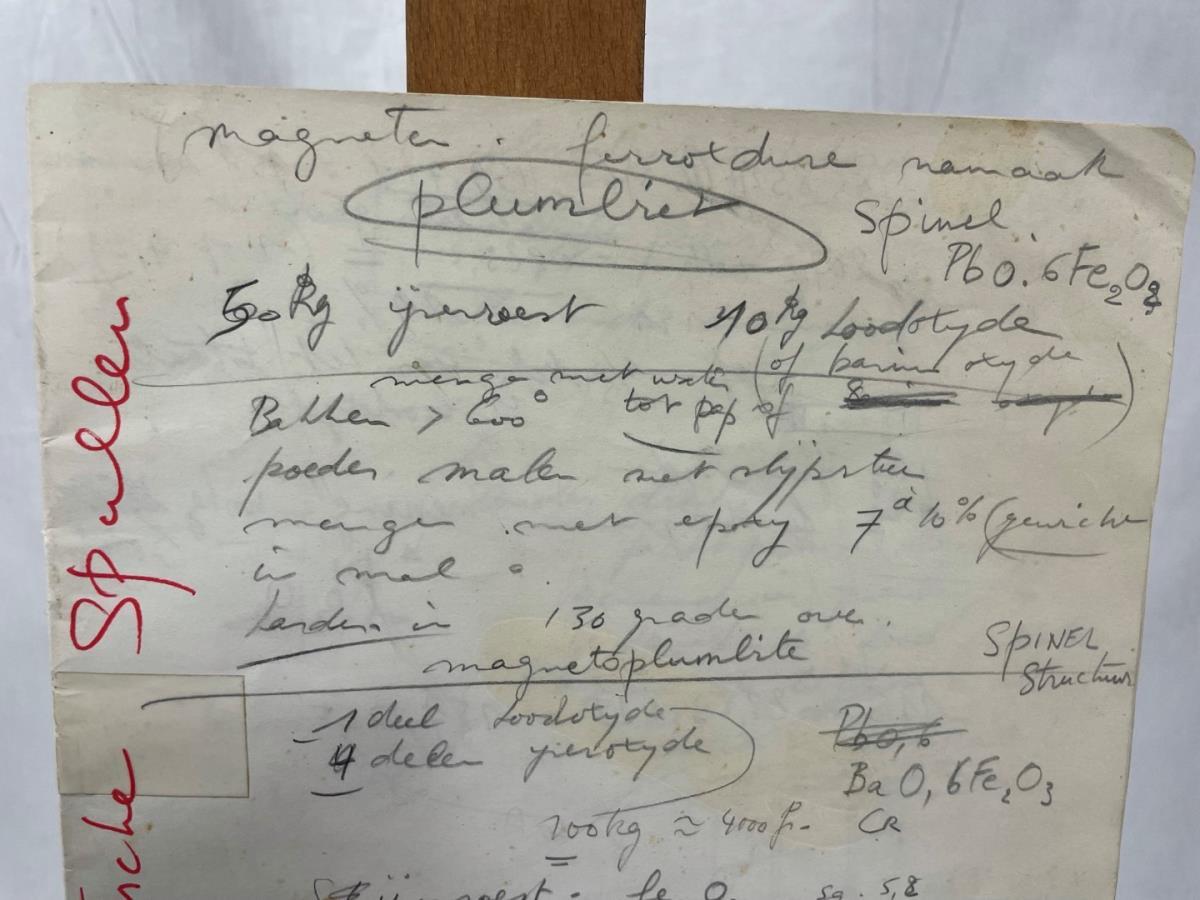 magneten. ferroxdure namaak
plumbiet
Spinel.
PbO.6Fe2O3
50 kg ijzerroest 40 kg Loodoxyde
(of barium oxyde
mengen met water
Bakken > 600° tot pap of
poeder malen met slijpsteen
mengen met epoxy 7 à 10% (gewicht
in mal
harden in 130 graden oven.
magnetoplumbite
SPINEL
Structuur
1 deel Loodoxyde
4 delen ijzeroxyde
PbO,6
BaO,6Fe2O3
100kg ≈ 4000 fr. CR
ijzerroest. sg. 5,8
Spullen